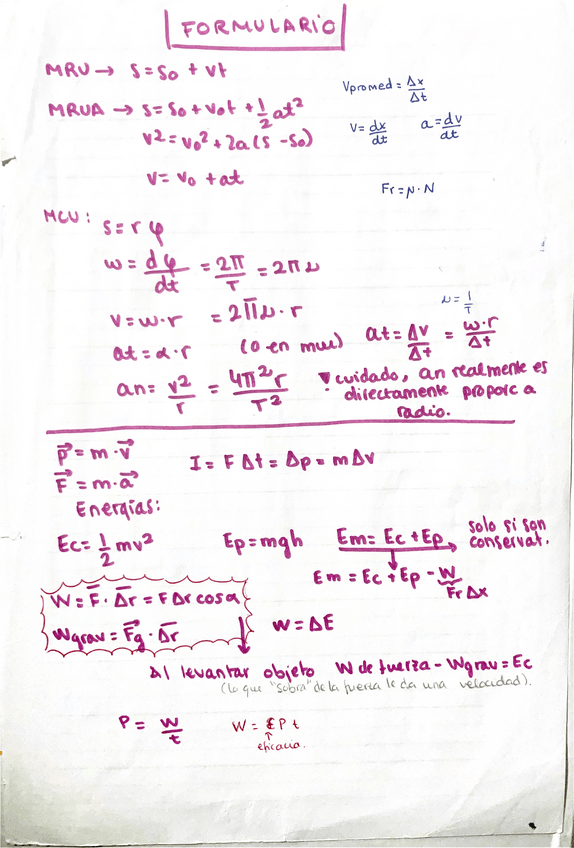 FORMULARIO
MRU → s = s₀ + vt
Vpromed = Δx/Δt
MRUA → s = s₀ + v₀t + 1/2 at²
v = dx/dt a = dv/dt
v² = v₀² + 2a(s - s₀)
v = v₀ + at
Fr = μ · N
MCU:
s = r φ
ω = dφ/dt = 2π/T = 2πν
ν = 1/T
v = ω · r = 2πν · r
at = α · r (0 en mcu) at = Δv/Δt = ω·r/Δt
an = v²/r = 4π²r/T² ! cuidado, an realmente es
directamente proporc a
radio.
p⃗ = m · v⃗
I = F Δt = Δp = mΔv
F⃗ = m · a⃗
Energías:
Ec = 1/2 mv² Ep = mgh Em = Ec + Ep → solo si son
conservat.
Em = Ec + Ep - W
Fr Δx
W = F̅ · Δr̅ = F Δr cos α
W = ΔE
Wgrav = F̅g · Δr̅
Al levantar objeto W de fuerza - Wgrav = Ec
(lo que "sobra" de la fuerza le da una velocidad).
P = W/t W = ε P t
↑
eficacia.